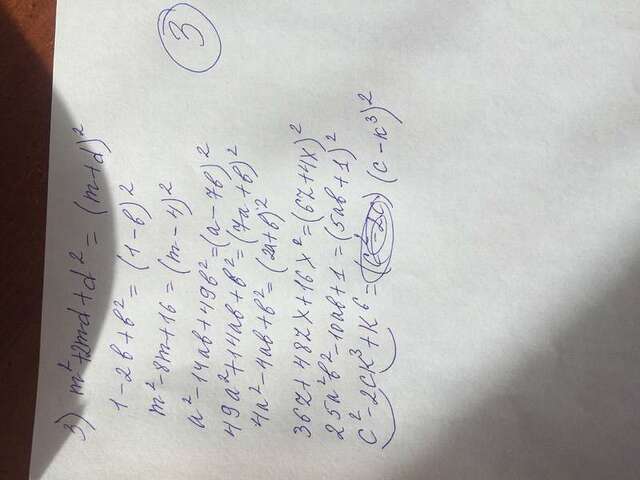 3) m²+2md+d² = (m+d)²
1-2в+в² = (1-в)²
m²-8m+16 = (m-4)²
a²-14aв+49в² = (a-7в)²
3
49a²+14aв+в² = (7a+в)²
4a²-4aв+в² = (2a+в)²
36z+48zx+16x² = (6z+4x)²
25a²в²-10aв+1 = (5aв+1)²
c²-2cк³+к⁶ = (c-к³)²